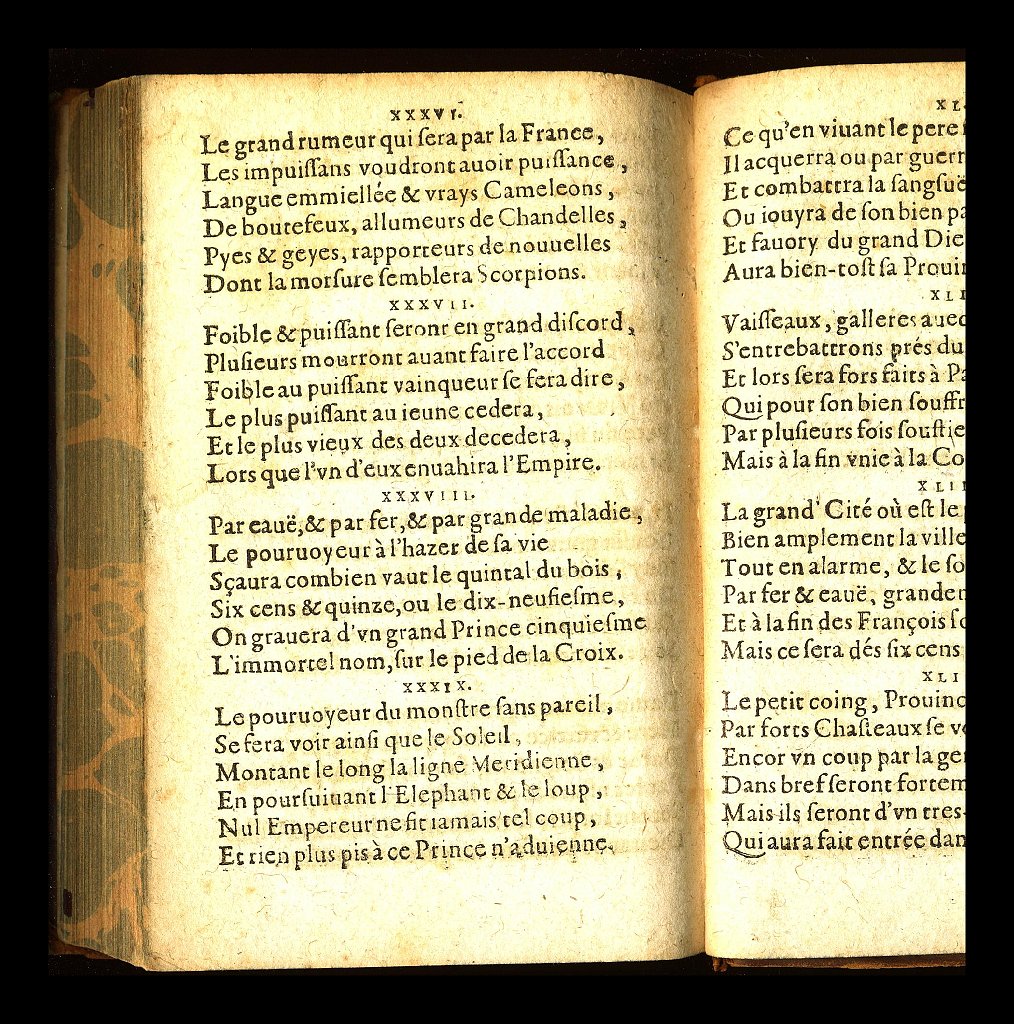 XXXVI.
Le grand rumeur qui ſera par la France,
Les impuiſſans voudront auoir puiſſance,
Langue emmiellée & vrays Cameleons,
De boutefeux, allumeurs de Chandelles,
Pyes & geyes, rapporteurs de nouuelles
Dont la morſure ſemblera Scorpions.
XXXVII.
Foible & puiſſant ſeront en grand diſcord,
Pluſieurs mourront auant faire l'accord
Foible au puiſſant vainqueur ſe fera dire,
Le plus puiſſant au ieune cedera,
Et le plus vieux des deux decedera,
Lors que l'vn d'eux enuahira l'Empire.
XXXVIII.
Par eauë, & par fer, & par grande maladie,
Le pouruoyeur à l'hazer de ſa vie
Sçaura combien vaut le quintal du bois,
Six cens & quinze, ou le dix-neufieſme,
On grauera d'vn grand Prince cinquieſme
L'immortel nom, ſur le pied de la Croix.
XXXIX.
Le pouruoyeur du monſtre ſans pareil,
Se fera voir ainſi que le Soleil,
Montant le long la ligne Meridienne,
En pourſuiuant l'Elephant & le loup,
Nul Empereur ne fit iamais tel coup,
Et rien plus pis à ce Prince n'aduienne.
XL
Ce qu'en viuant le pere
Il acquerra ou par guerr
Et combattra la ſangſuë
Ou iouyra de ſon bien pa
Et fauory du grand Die
Aura bien-toſt ſa Prouin
XLI
Vaiſſeaux, galleres auec
S'entrebattrons prés du
Et lors ſera fors faits à Pa
Qui pour ſon bien ſouffr
Par pluſieurs fois ſouſtie
Mais à la fin vnie à la Co
XLII
La grand' Cité où eſt le
Bien amplement la ville
Tout en alarme, & le ſo
Par fer & eauë, grande
Et à la fin des François ſo
Mais ce ſera dés ſix cens
XLI
Le petit coing, Prouinc
Par forts Chaſteaux ſe v
Encor vn coup par la ge
Dans bref ſeront fortem
Mais ils ſeront d'vn tres-
Qui aura fait entrée dan